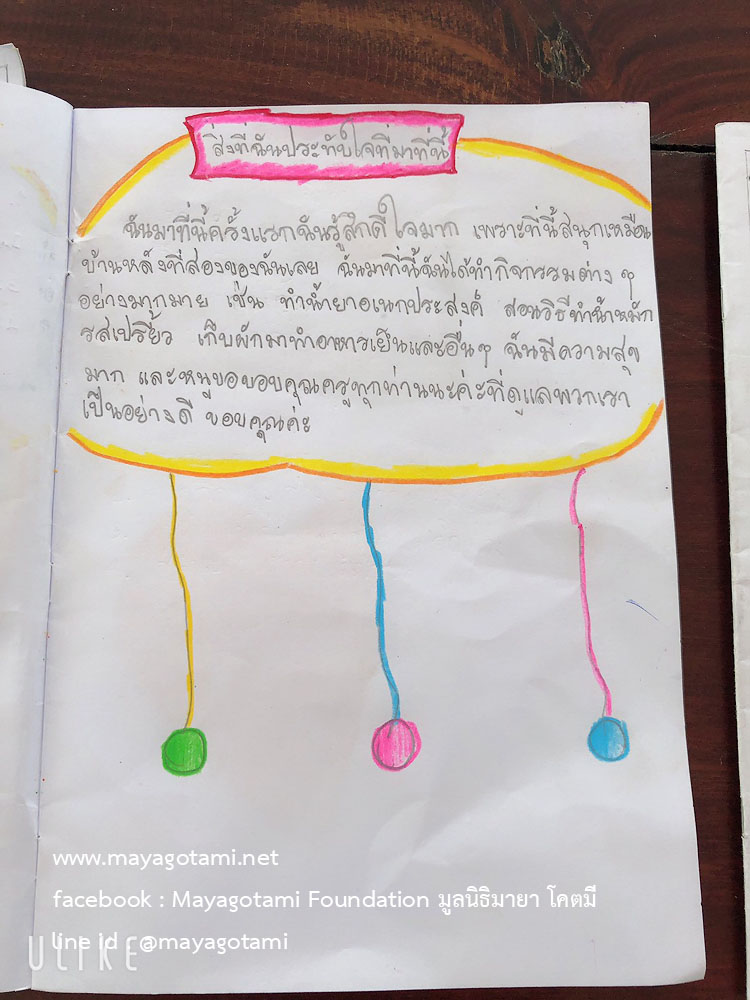 สิ่งที่ฉันประทับใจที่มาที่นี้
ฉันมาที่นี้ครั้งแรกฉันรู้สึกดีใจมาก เพราะที่นี้สนุกเหมือน
บ้านหลังที่สองของฉันเลย ฉันมาที่นี้ฉันได้ทำกิจกรรมต่าง ๆ
อย่างมากมาย เช่น ทำน้ำยาอเนกประสงค์ สอนวิธีทำน้ำหมัก
รสเปรี้ยว เก็บผักมาทำอาหารเย็นและอื่นๆ ฉันมีความสุข
มาก และหนูขอขอบคุณครูทุกท่านนะค่ะที่ดูแลพวกเรา
เป็นอย่างดี ขอบคุณค่ะ
www.mayagotami.net
facebook : Mayagotami Foundation มูลนิธิมายา โคตมี
line id : @mayagotami
ULIKE